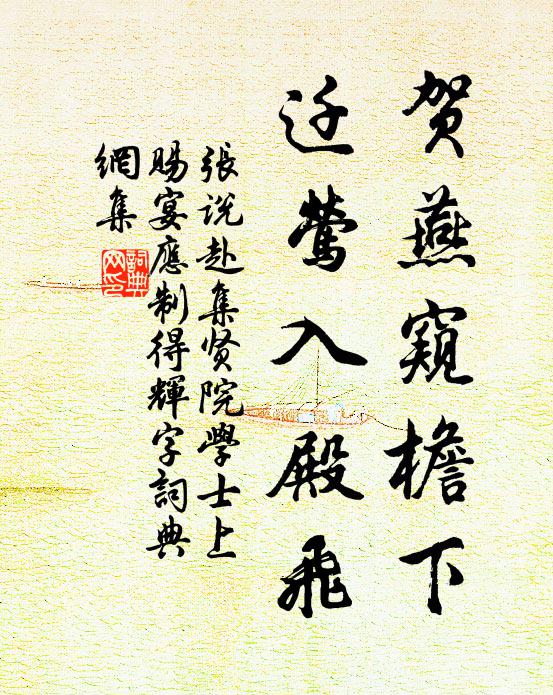 贺燕窺檐下
迁鶯入殿飛
張说赴集贤院學士上
賜宴應制得輝字詞典
網集
詞典
网印